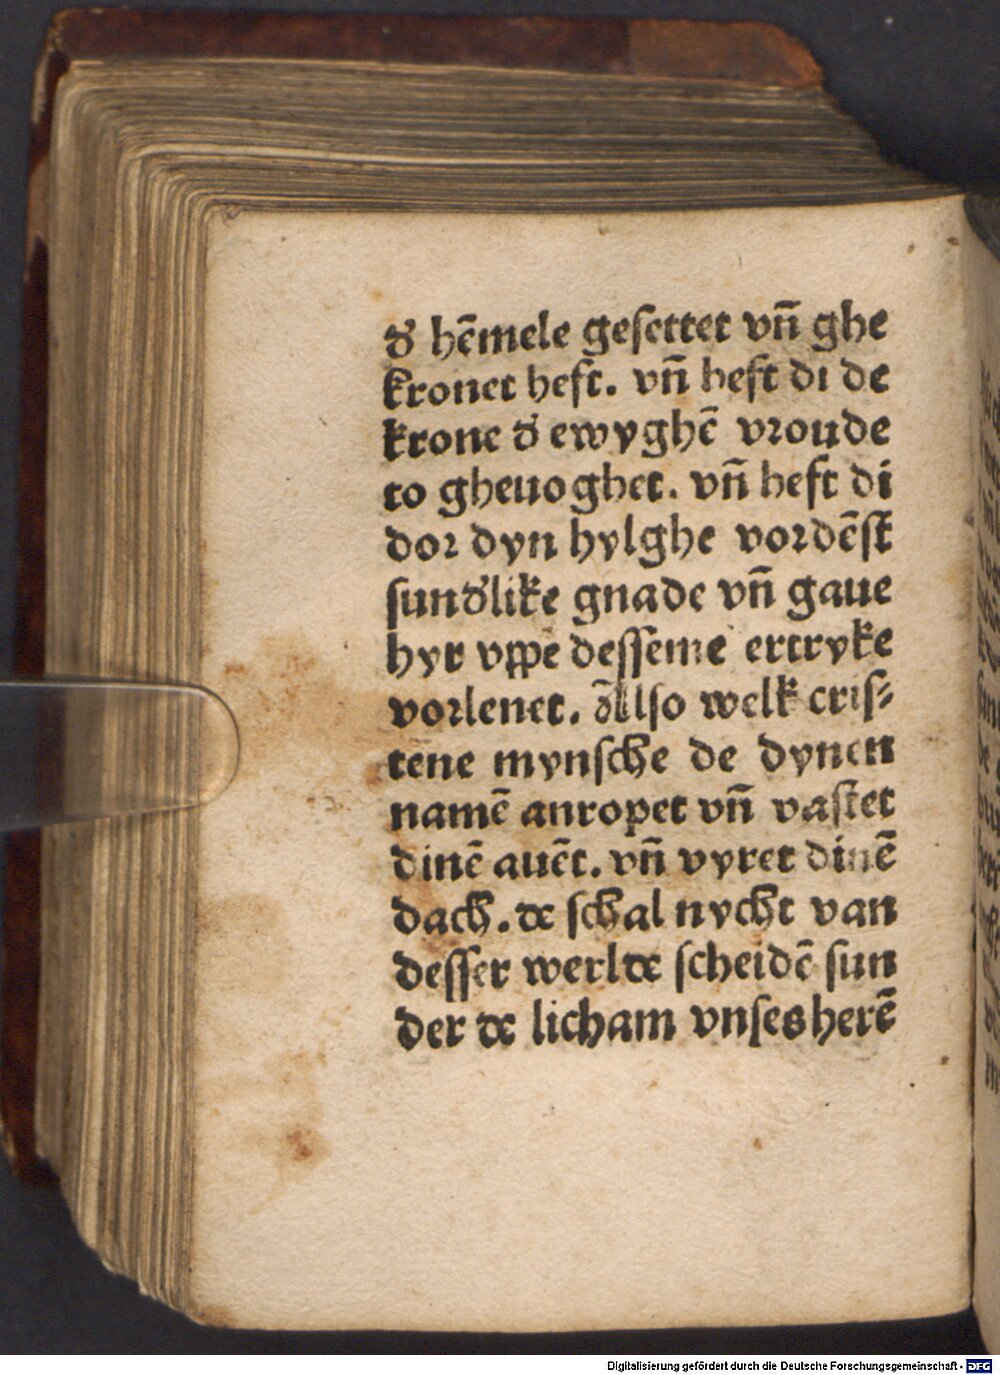 ð hēmele gesettet vñ ghe
kronet heft. vñ heft di de
krone ð ewyghē vroude
to gheuoghet. vñ heft di
dor dyn hylghe vordēst
sunðlike gnade vñ gaue
hyr vppe desseme ertryke
vorlenet. Also welk cris⸗
tene mynsche de dynen
namē anropet vñ vastet
dinē auēt. vñ vyret dinē
dach. de schal nycht van
desser werlde scheidē sun
der de licham vnses herē
Digitalisierung gefördert durch die Deutsche Forschungsgemeinschaft - DFG